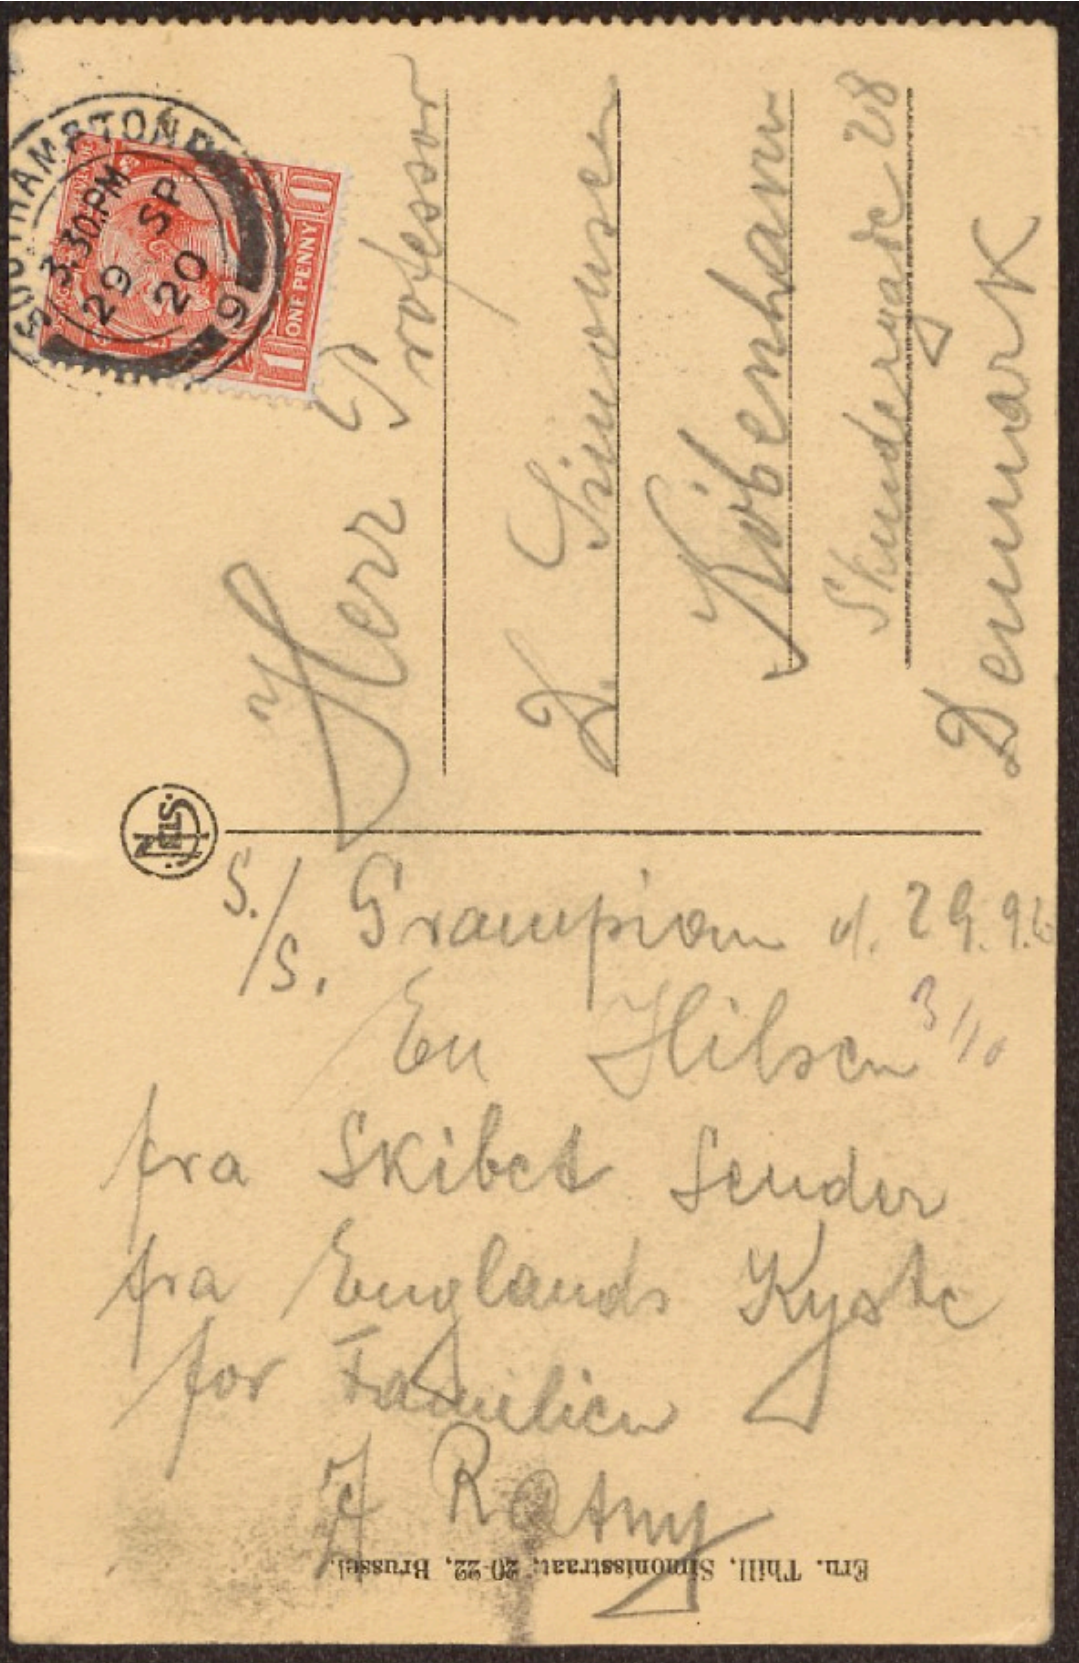 SOUTHAMPTON
3.30 PM
29 SP
20
9
1 ONE PENNY 1
Herr Professor
D. Simonsen
Köbenhavn
Skindergade 28
Denmark
NELS
S./S. Grampian d. 29.9.
3/10
En Hilsen
fra Skibet sender
fra Englands Kyste
for Familien
Ratny
Ern. Thill, Simonisstraat, 20-22, Brussel.